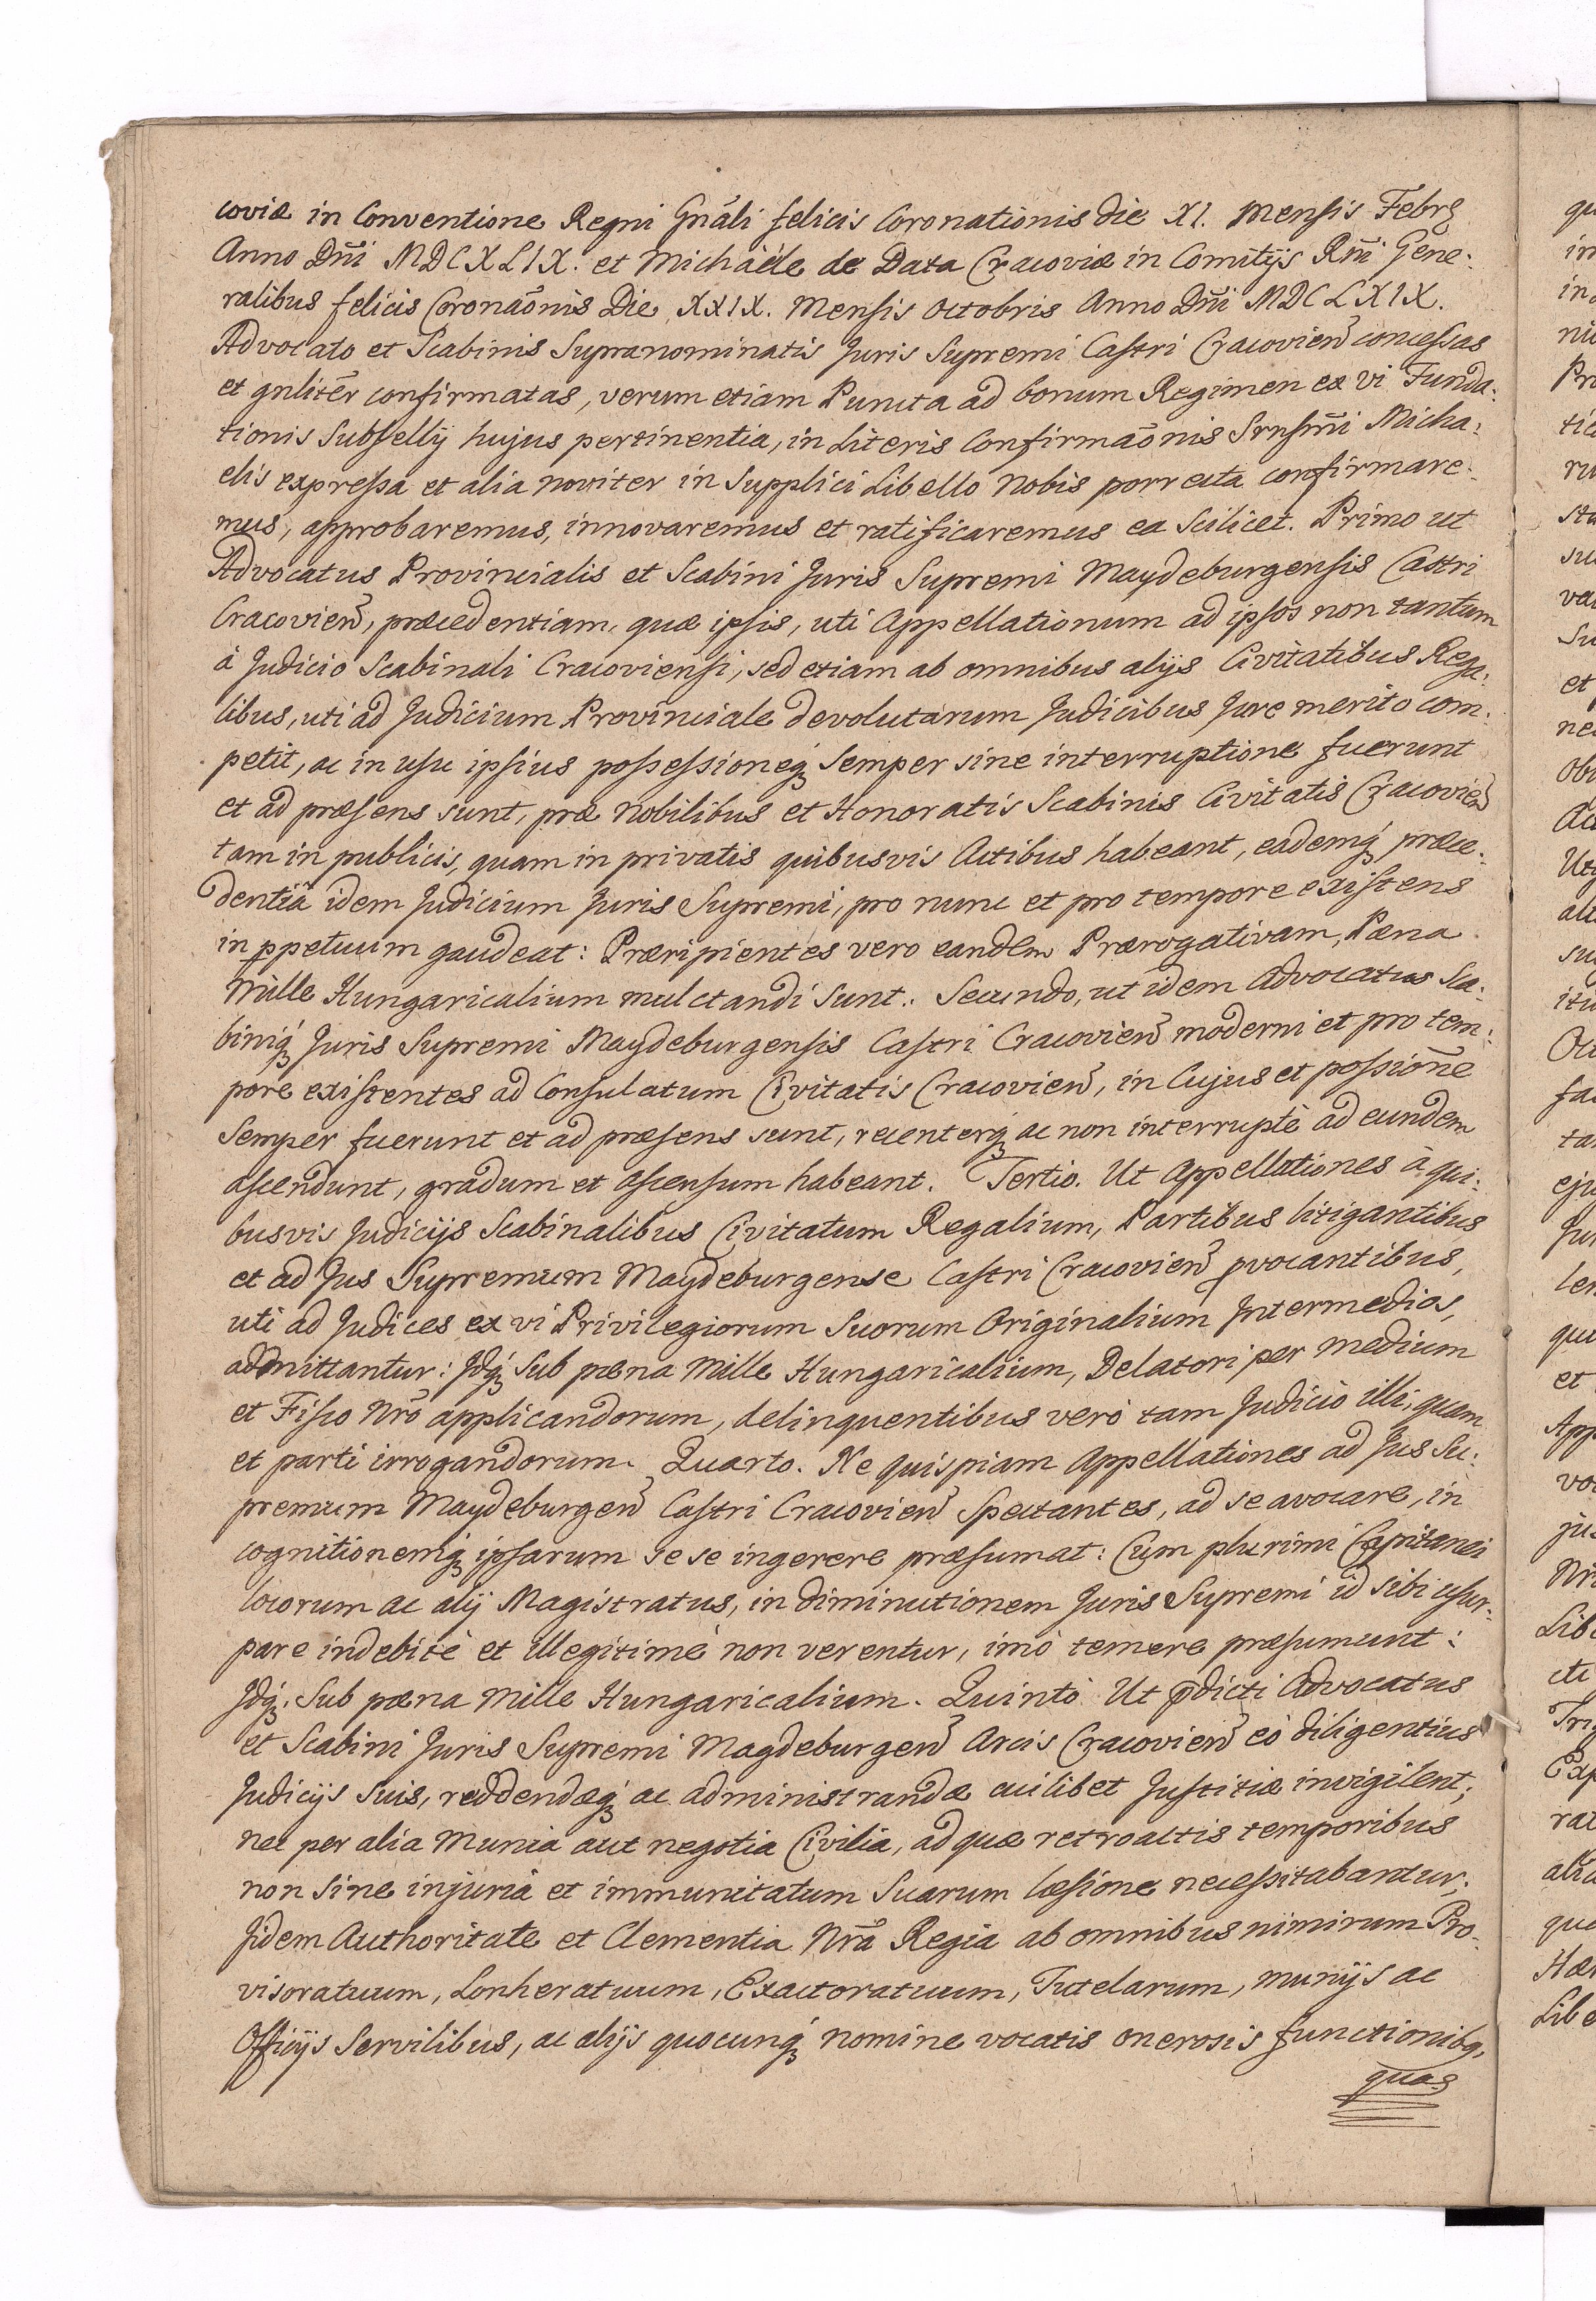 coviæ in Conventione Regni Gnãli felicis Coronationis die XI. Mensis Febrs
Anno Dñi MDCXLIX. et Michaële de Data Cracoviæ in Comitijs Rñi Gene:
ralibus felicis Coronaõnis Die XXIX. Mensis Octobris Anno Dñi MDCLXIX.
Advocato et Scabinis Supranominatis Juris Supremi Castri Cracovien̄ concessas
et gnliter̄ confirmatas, verum etiam Puncta ad bonum Regimen ex vi Funda:
tionis Subsellij hujus pertinentia, in Literis Confirmaõnis Srnssm̃i Micha:
elis expressa et alia noviter in Supplici Libello Nobis porrecta confirmare:
mus, approbaremus, innovaremus et ratificaremus ea Scilicet. Primo ut
Advocatus Provincialis et Scabini Juris Supremi Maydeburgensis Castri
Cracovien̄, præcedentiam, quæ ipsis, uti Appellationum ad ipsos non tantum
à Judicio Scabinali Cracoviensi, sed etiam ab omnibus alijs Civitatibus Rega:
libus, uti ad Judicium Provinciale devolutarum Judicibus Jure merito com:
petit, ac in usu ipsius possessioneq́ꝫ Semper sine interruptione fuerunt
et ad præsens sunt, præ Nobilibus et Honoratis Scabinis Civitatis Cracovien̄
tam in publicis, quam in privatis quibusvis Actibus habeant, eademq́ꝫ præce:
dentiâ idem Judicium Juris Supremi, pro nunc et pro tempore existens
in ꝑpetuum gaudeat: Præripientes vero eandem Prærogativam, Pæna
Mille Hungaricalium mulctandi sunt. Secundo, ut idem Advocatus Sca:
biniq́ꝫ Juris Supremi Maydeburgensis Castri Cracovien̄ moderni et pro tem:
pore existentes ad Consulatum Civitatis Cracovien̄, in Cujus et possioñe
Semper fuerunt et ad præsens sunt, recenterq́ꝫ ac non interruptè ad eundem
ascendunt, gradum et ascensum habeant. Tertio. Ut Appellationes à qui:
busvis Judicijs Scabinalibus Civitatum Regalium, Partibus litigantibus
et ad Jus Supremum Maydeburgense Castri Cracovien̄ ꝓvocantibus,
uti ad Judices ex vi Privilegiorum Suorum Originalium Intermedios,
admittantur: Idq́ꝫ Sub pæna Mille Hungaricalium, Delatori per medium
et Fisco Nrõ applicandorum, delinquentibus verò tam Judicio illi, quam
et parti irrogandorum. Quarto. Ne quispiam Appellationes ad Jus Su:
premum Maydeburgen̄ Castri Cracovien̄ Spectantes, ad se avocare, in
cognitionemq́ꝫ ipsarum se se ingerere præsumat: Cùm plurimi Capitanei
locorum ac alij Magistratus, in diminutionem Juris Supremi id sibi usur:
pare indebitè et illegitimè non verentur, imò temere præsumunt:
Idq́ꝫ. Sub pæna Mille Hungaricalium. Quintò Ut p̃dicti Advocatus
et Scabini Juris Supremi Magdeburgen̄ Arcis Cracovien̄ eò diligentius
Judicijs suis, reddendæq́ꝫ ac administrandæ cuilibet Justitiæ invigilent;
nec per alia Munia aut negotia Civilia, ad quæ retroactis temporibus
non sine injuriâ et immunitatum Suarum læsione necessitabantur;
Iidem Authoritate et Clementia Nrã Regia ab omnibus nimirum Pro:
visoratuum, Lonheratuum, Exactoratuum, Tutelarum, munijs ac
Officijs Servilibus, ac alijs quocunq́ꝫ nomine vocatis onerosis functionibq,
quas